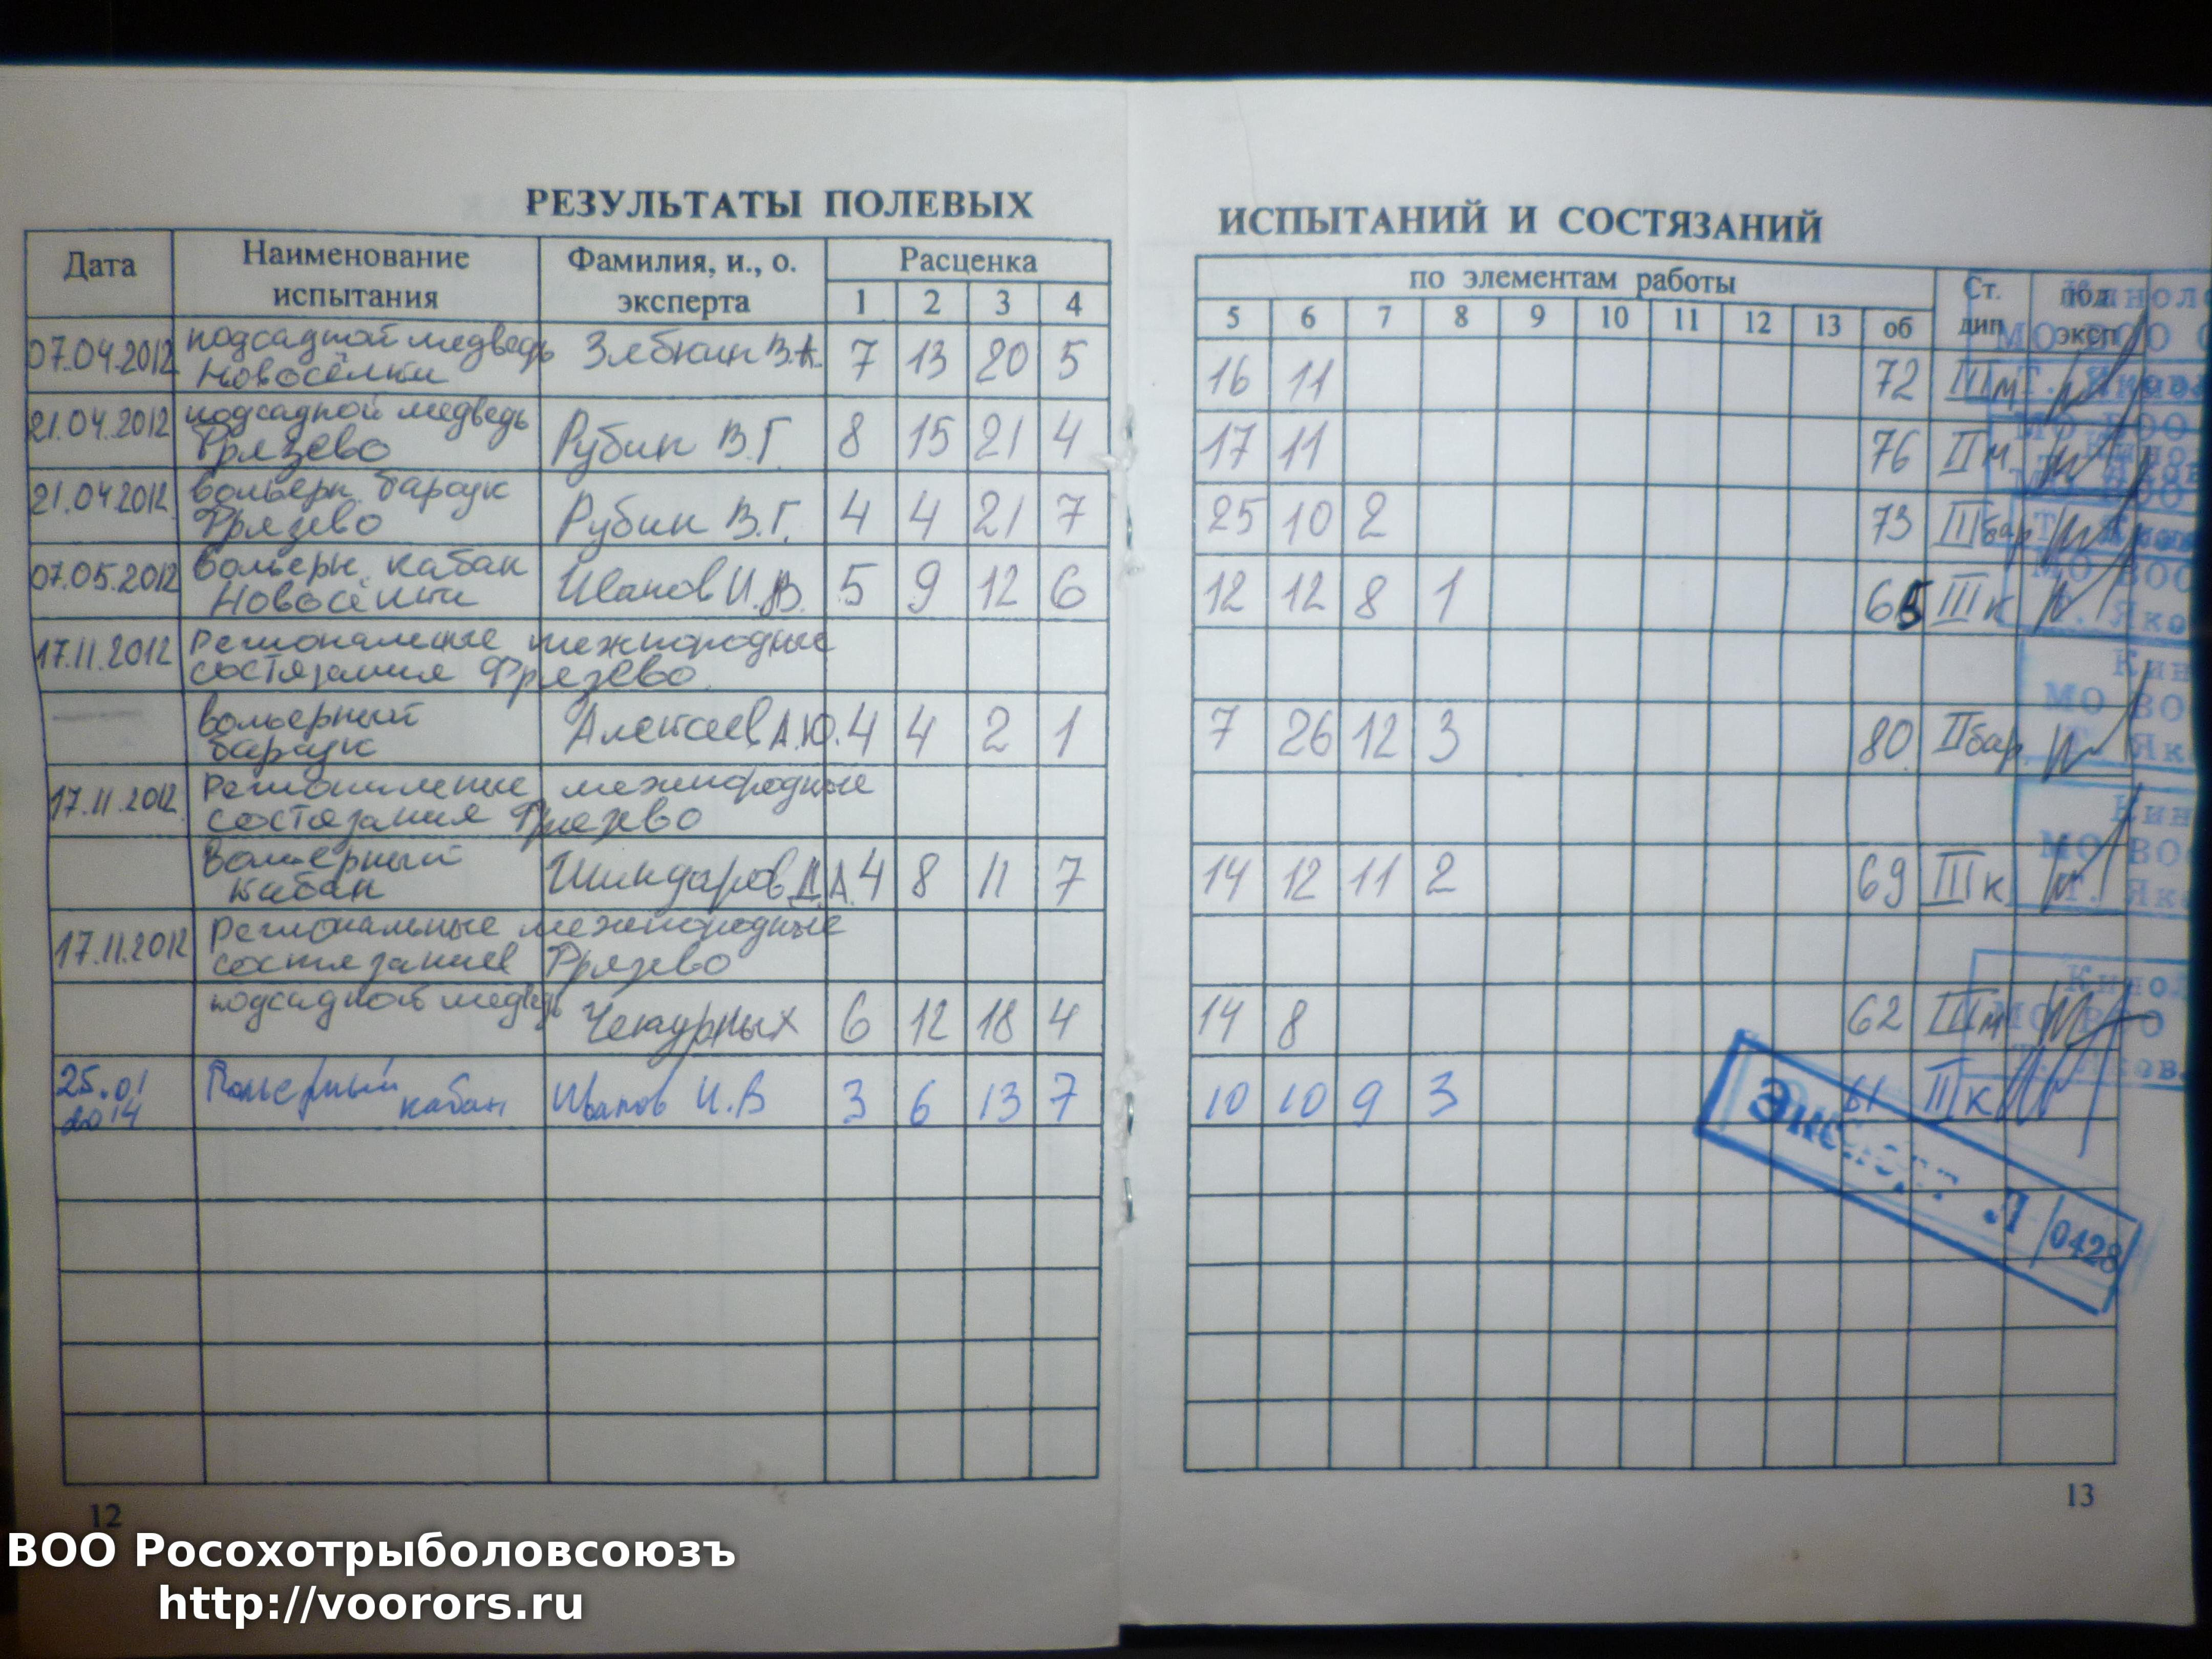 РЕЗУЛЬТАТЫ ПОЛЕВЫХ ИСПЫТАНИЙ И СОСТЯЗАНИЙ
Дата Наименование испытания Фамилия, и., о. эксперта Расценка по элементам работы Ст. дип под эксп
1 2 3 4 5 6 7 8 9 10 11 12 13 об
07.04.2012 подсадной медведь Зябкин В.А. 7 13 20 5 16 11 72 III м
Новосёлки
21.04.2012 подсадной медведь Рубин В.Г. 8 15 21 4 17 11 76 II м
Фрязево
21.04.2012 вольерн. барсук Рубин В.Г. 4 4 21 7 25 10 2 73 III бар
Фрязево
07.05.2012 вольерн. кабан Иванов И.В. 5 9 12 6 12 12 8 1 65 III к
Новосёлки
17.11.2012 Региональные межпородные
состязания Фрязево
вольерный Алексеев А.Ю. 4 4 2 1 7 26 12 3 80 II бар
барсук
17.11.2012 Региональные межпородные
состязания Фрязево
вольерный Д.А. 4 8 11 7 14 12 11 2 69 III к
кабан
17.11.2012 Региональные межпородные
состязания Фрязево
подсадной медведь 6 12 18 4 14 8 62 III м
25.01 Вольерный Иванов И.В 3 6 13 7 10 10 9 3 61 III к
2014 кабан
Эксперт Л 0428
12
13
ВОО Росохотрыболовсоюзъ
http://voorors.ru